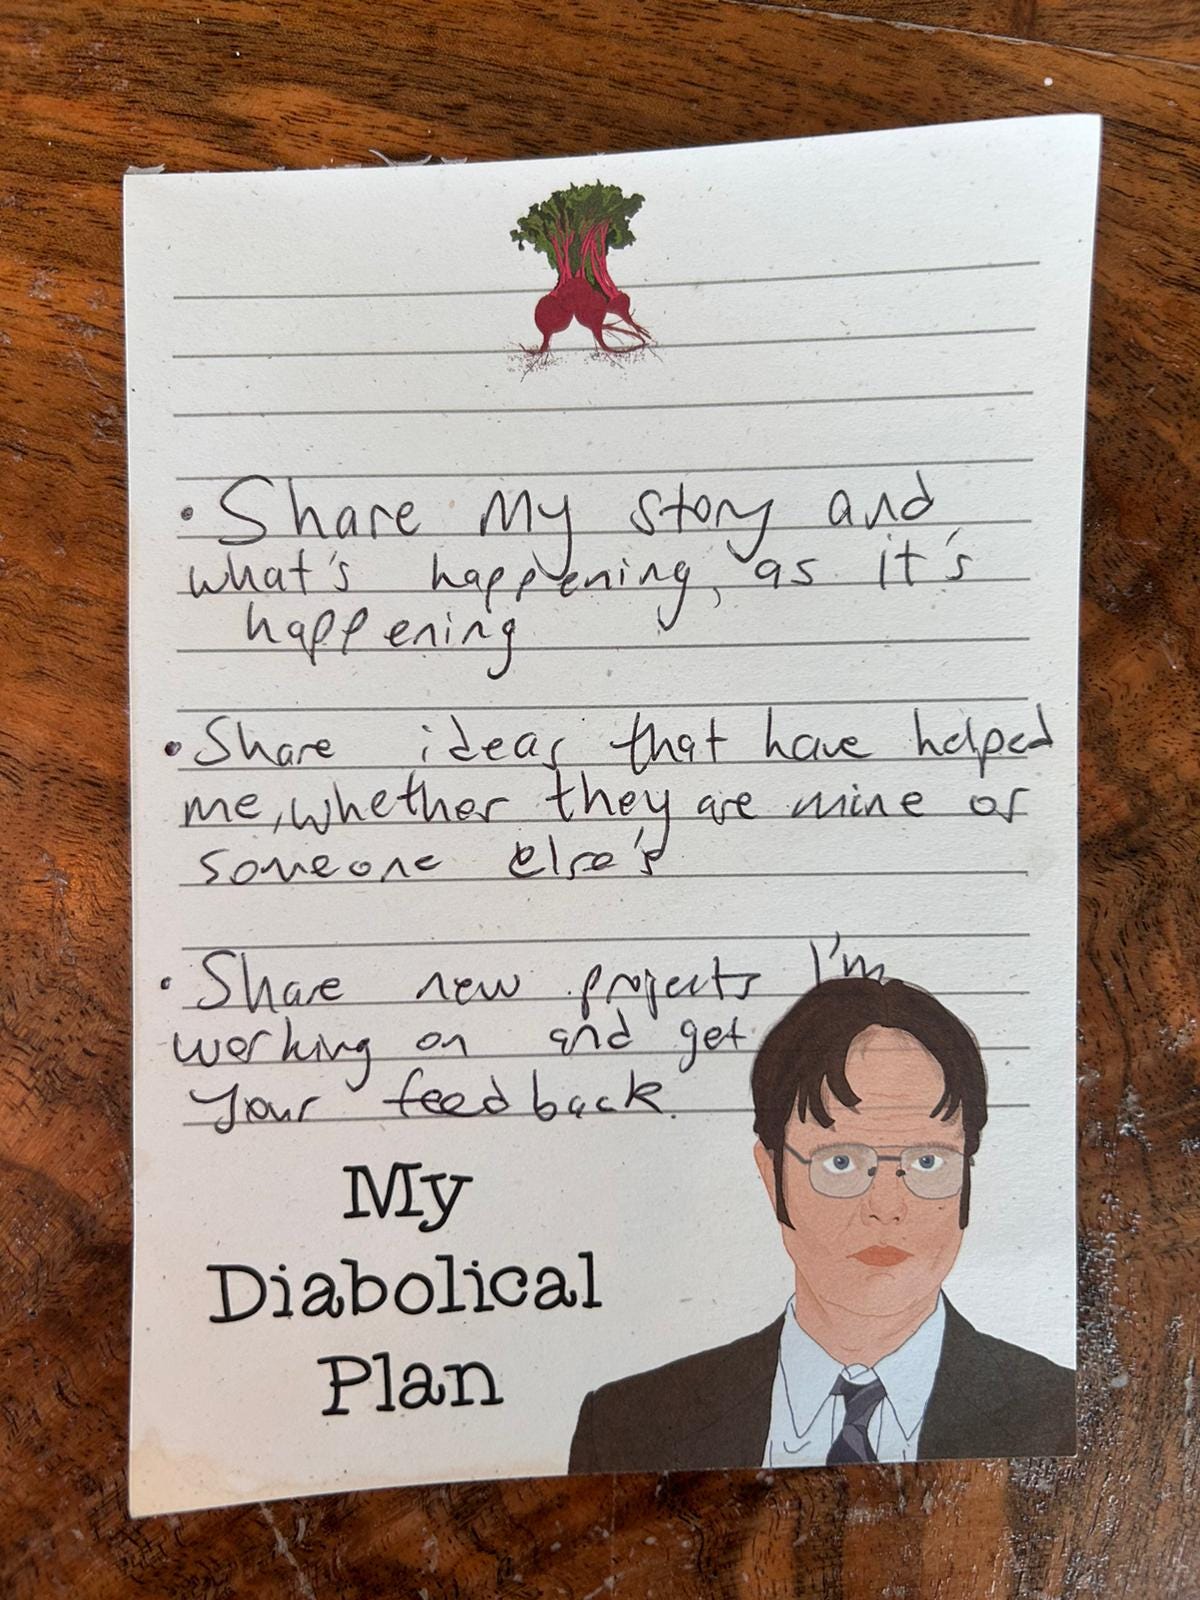 • Share My story and
what's happening, as it's
happening
• Share ideas that have helped
me, whether they are mine or
someone else's
• Share new projects I'm
working on and get
your feedback.
My
Diabolical
Plan